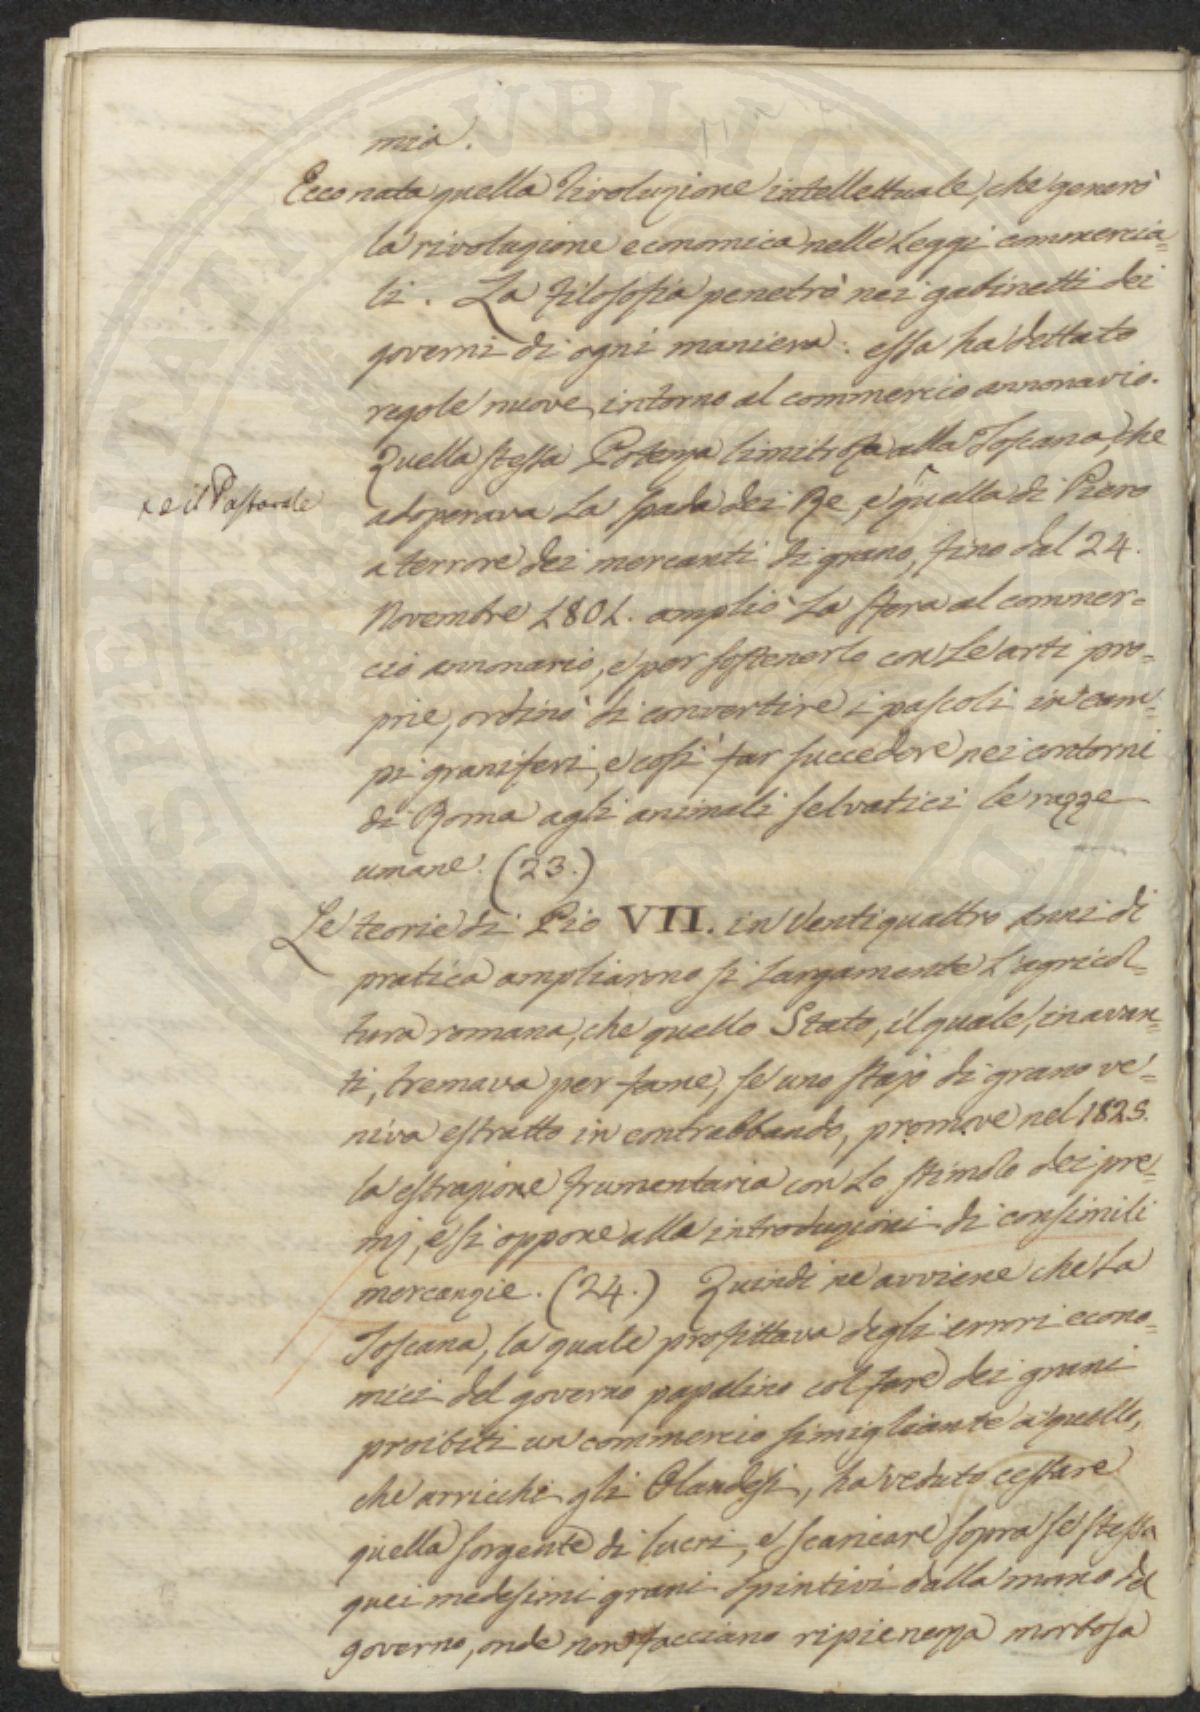 mia.
Ecco nata quella rivoluzione intellettuale, che generò
la rivoluzione economica nelle Leggi commercia=
li. La filosofia penetrò nei gabinetti dei
governi di ogni maniera: essa ha dettato
regole nuove intorno al commercio annonario.
Quella stessa Potenza limitrofa alla Toscana, che
x e il Pastorale
adoperava la spada dei Re, e quella di Piero
a terrore dei mercanti di grano, fino dal 24.
Novembre 1801. ampliò la sfera al commer=
cio annonario, e per sostenerlo con le arti pro=
prie, ordinò di convertire i pascoli in cam=
pi graniferi, e così far succedere nei contorni
di Roma agli animali selvatici le razze
umane. (23.)
Le teorie di Pio VII. in Ventiquattro Anni di
pratica ampliarono sì largamente l'agricol=
tura romana, che quello Stato, il quale, inavan=
ti, tremava per fame, se uno stajo di grano ve=
niva estratto in contrabbando, promove nel 1825.
la estrazione frumentaria con lo stimolo dei pre=
mj, e si oppone alla introduzioni di consimili
mercanzie. (24.) Quindi ne avviene che la
Toscana, la quale profittava degli errori econo=
mici del governo papalino col fare dei grani
proibiti un commercio simigliante a quello,
che arricchì gli Olandesi, ha veduto cessare
quella sorgente di lucri, e scaricare sopra se stessa
quei medesimi grani spintivi dalla mano del
governo, onde non facciano ripienezza morbosa
SOSPERITATI PUBLICAE